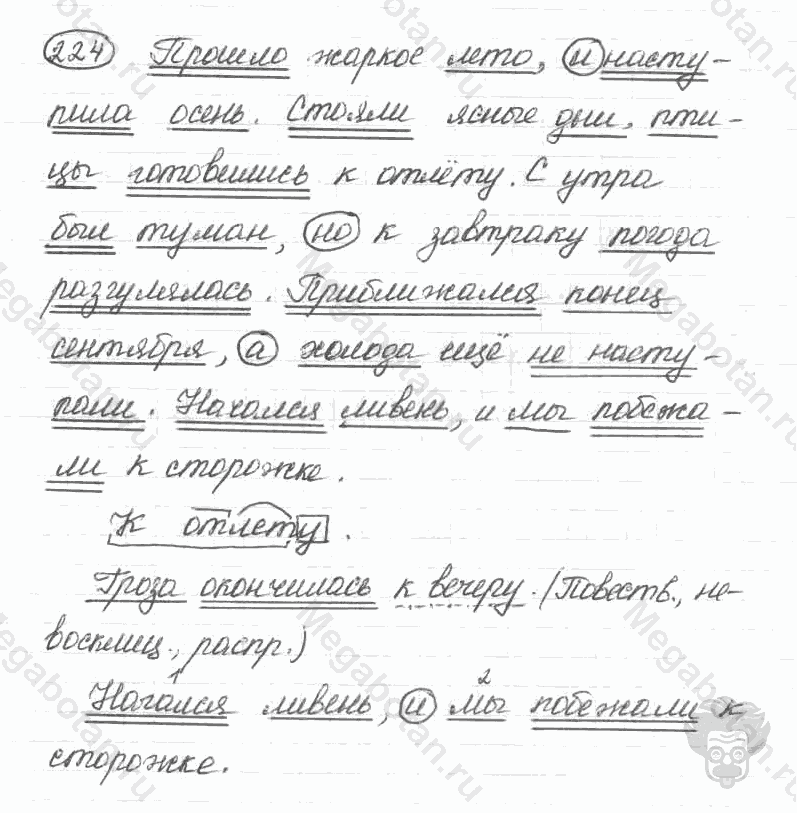 224 Прошло жаркое лето, и насту-
пила осень. Стояли ясные дни, пти-
цы готовились к отлёту. С утра
был туман, но к завтраку погода
разгулялась. Приближался конец
сентября, а холода ещё не насту-
пали. Начался ливень, и мы побежа-
ли к сторожке.
К отлету.
Гроза окончилась к вечеру. (Повеств., не-
восклиц., распр.)
1 2
Начался ливень, и мы побежали к
сторожке.
Megabotan.ru